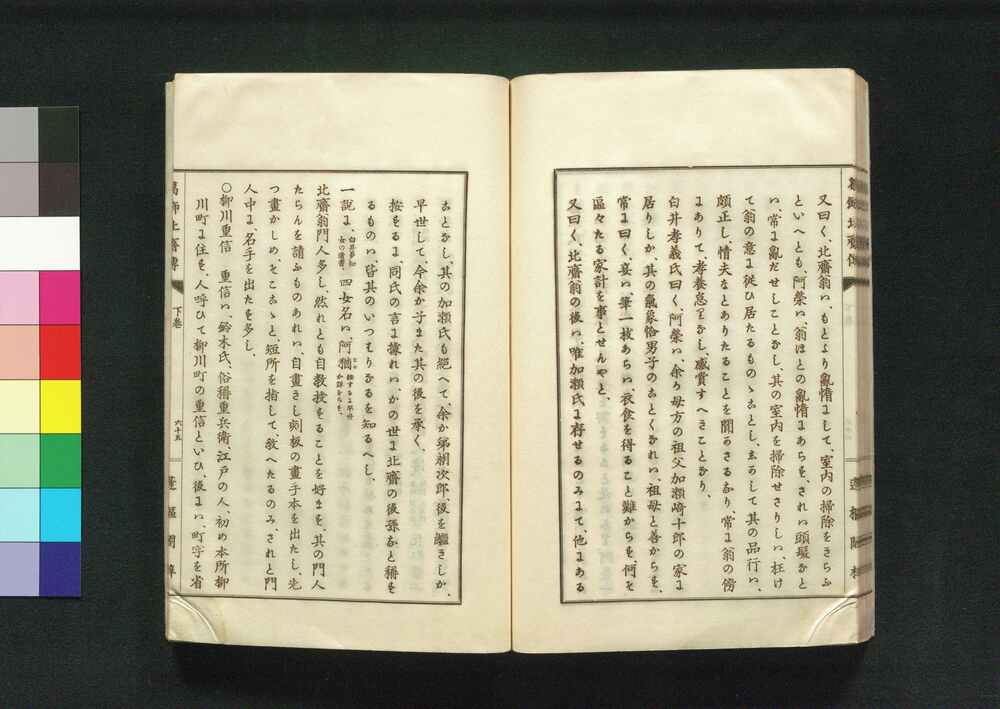 又曰く、北齋翁は、もとより亂惰にして、室内の掃除をきらふ
といへとも、阿榮は、翁ほとの亂惰にあらす、されは頭髪なと
は、常に亂だせしことなし、其の室内を掃除せさりしは、枉け
て翁の意に從ひ居たるものゝことし、しかして其の品行は、
頗正し、情夫なとありたることを聞かさるなり、常に翁の傍
にありて、孝養怠りなし、感賞すへきことなり、
白井孝義氏曰く、阿榮は、余か母方の祖父加瀬崎十郎の家に
居りしか、其の氣象恰男子のことくなれは、祖母と善からす、
常に曰く、妾は、筆一枝あらは、衣食を得ること難からす、何そ
區々たる家計を事とせんやと、
又曰く、北齋翁の後は、唯加瀬氏に存せるのみにて、他にある
ことなし、其の加瀬氏も絶へて、余か弟朔次郎、後を繼きしか、
早世して、今余か子また其の後を承く、
按するに、同氏の言に據れは、かの世に北齋の後孫なと稱す
るものは、皆其のいつはりなるを知るへし、
一説に、白井多知女の遺書、四女名は、阿猶
北齋翁門人多し、然れとも自教授することを好ます、其の門人
たらんを請ふものあれは、自畫きし刻板の畫手本を出たし、先
つ畫かしめ、そこゝゝと短所を指して、敎へたるのみ、されと門
人中に、名手を出たす多し、
○柳川重信 重信は、鈴木氏、俗稱重兵衛、江戸の人、初め本所柳
川町に住す、人呼ひて柳川町の重信といひ、後には、町字を省
葛飾北齋傳 下卷 六十五 蓬樞閣梓